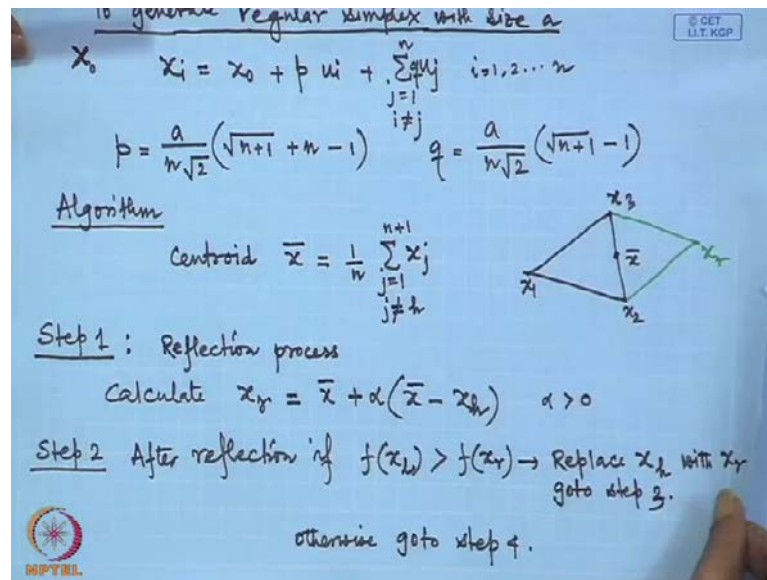 To generate regular simplex with size a
© CET
I.I.T. KGP
X₀ xi = x₀ + p ui + Σ quj i=1,2...n
n
j=1
i≠j
p = a/(n√2) (√(n+1) + n - 1) q = a/(n√2) (√(n+1) - 1)
Algorithm
Centroid x̄ = 1/n Σ xj
n+1
j=1
j≠h
x3
x̄
xr
x1
x2
Step 1 : Reflection process
Calculate xr = x̄ + α(x̄ - xh) α > 0
Step 2 After reflection if f(xh) > f(xr) → Replace xh with xr
goto step 3.
otherwise goto step 4.
NPTEL